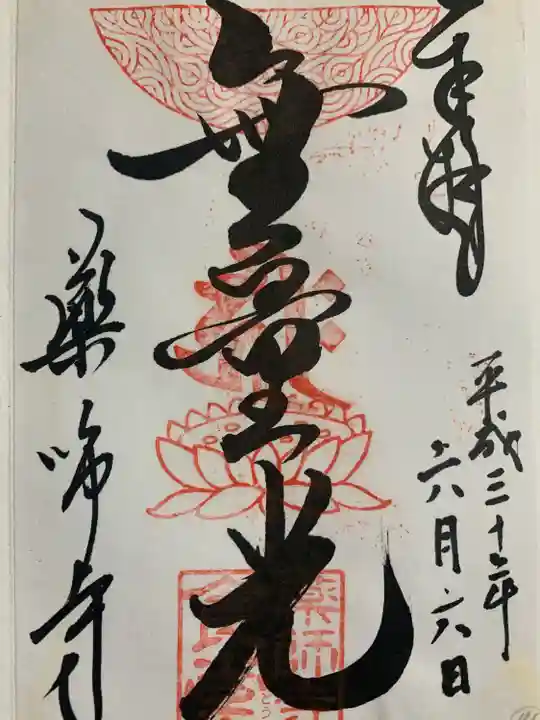 奉拝
平成三十年
六月六日
無量光
薬師寺